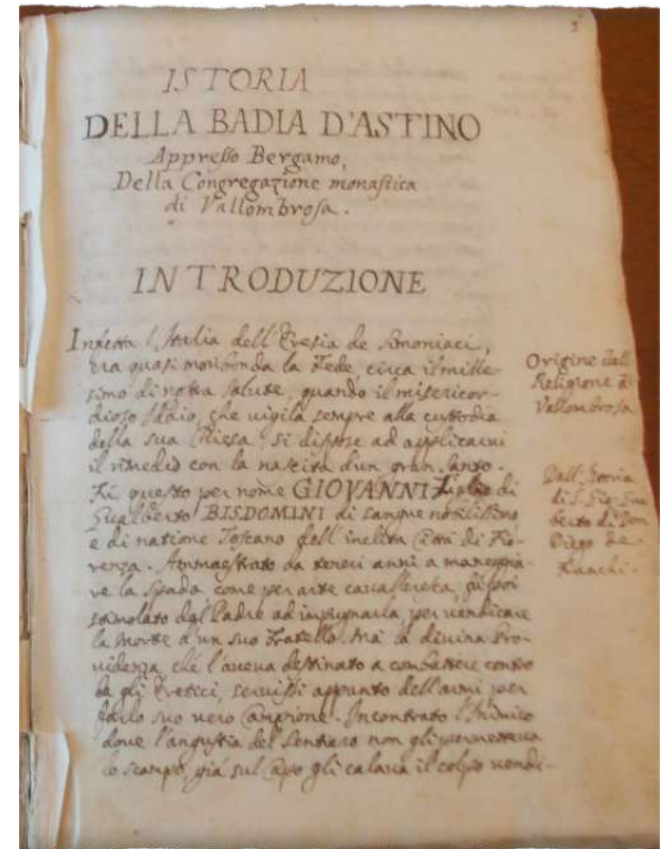 3
ISTORIA
DELLA BADIA D'ASTINO
Appresso Bergamo,
Della Congregazione monastica
di Vallombrosa.
INTRODUZIONE
Infecta l'Italia dell'Eresia de Simoniaci,
era quasi moribonda la Fede, circa il mille-
simo di nostra salute, quando il misericor-
dioso Iddio, che vigila sempre alla custodia
della sua Chiesa, si dispose ad applicarvi
il rimedio con la nascita d'un gran Santo.
Fù questo per nome GIOVANNI Figlio di
Gualberto BISDOMINI di sangue nobilissimo
e di natione Toscano dell'inclita Città di Fio-
renza. Ammaestrato da teneri anni a maneggia-
re la spada, come per arte cavalleresca, fù poi
stimolato dal Padre ad impugnarla, per vendicare
la Morte d'un suo Fratello. Mà la divina Pro-
videnza, che l'aveva destinato a combattere contro
gli Eretici, servissi appunto dell'armi per
farlo suo vero Campione. Incontrato l'Inimico
dove l'angustia del Sentiero non gli permetteva
lo scampo, già sul Capo gli calava il colpo vendi-
Origine della
Religione di
Vallombrosa
Dall'Istoria
di S. Gio: Gual-
berto di Don
Diego de
Franchi.